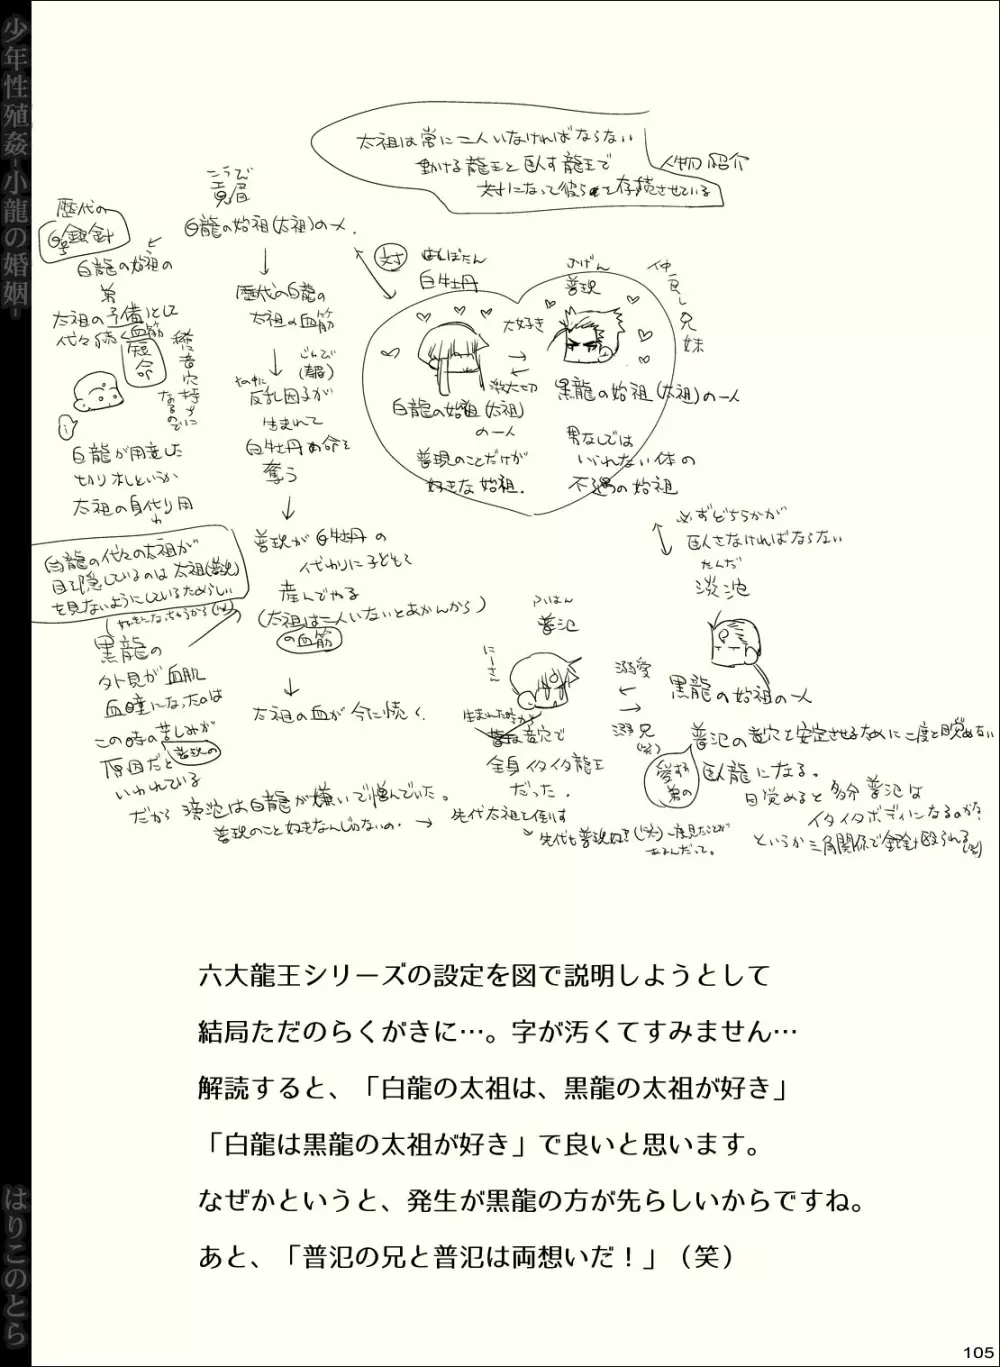 少年性殖姦-小龍の婚姻-
はりこのとら
太祖は常に二人いなければならない
動ける龍王と臥す龍王で
対になって彼らを存続させている
人物紹介
こうび
白龍の始祖(太祖)の一人
歴代の
銀針
白龍の始祖の
弟
太祖の予備として
代々続く血筋
短命
白龍が用意した
切り札というか
太祖の身代り用
歴代の白龍の
太祖の血筋
反乱因子が
生まれて
白牡丹の命を
奪う
対
はくぼたん
白牡丹
ふげん
普現
仲良し兄妹
大好き
激大切
白龍の始祖(太祖)
の一人
黒龍の始祖(太祖)の一人
普現のことだけが
好きな始祖.
男なしでは
いられない体の
不遇の始祖
普現が白牡丹の
代わりに子どもを
産んでやる
(太祖は二人いないとあかんから)
の血筋
太祖の血が今に続く.
白龍の代々の太祖が
目を隠しているのは太祖(普現)
を見ないようにしているためらしい
黒龍の
外見が血肌
血瞳になったのは
この時の苦しみが
普現の
原因だと
いわれている
必ずどちらかが
臥さなければならない
たんだ
淡沱
黒龍の始祖の一人
ふはん
普氾
にーさん
溺愛
溺兄
(笑)
生まれた時から
竜穴で
全身イタイタ龍王
だった.
愛する
弟の
普氾の竜穴を安定させるために二度と目覚めない
臥龍になる。
目覚めると多分普氾は
イタイタボディになるのか?
というか三角関係で銀針に殴られる(笑)
だから淡沱は白龍が嫌いで憎んでいた。
普現のこと好きなんじゃないの.
先代太祖を倒す
六大龍王シリーズの設定を図で説明しようとして
結局ただのらくがきに…。字が汚くてすみません…
解読すると、「白龍の太祖は、黒龍の太祖が好き」
「白龍は黒龍の太祖が好き」で良いと思います。
なぜかというと、発生が黒龍の方が先らしいからですね。
あと、「普氾の兄と普氾は両想いだ！」（笑）
105